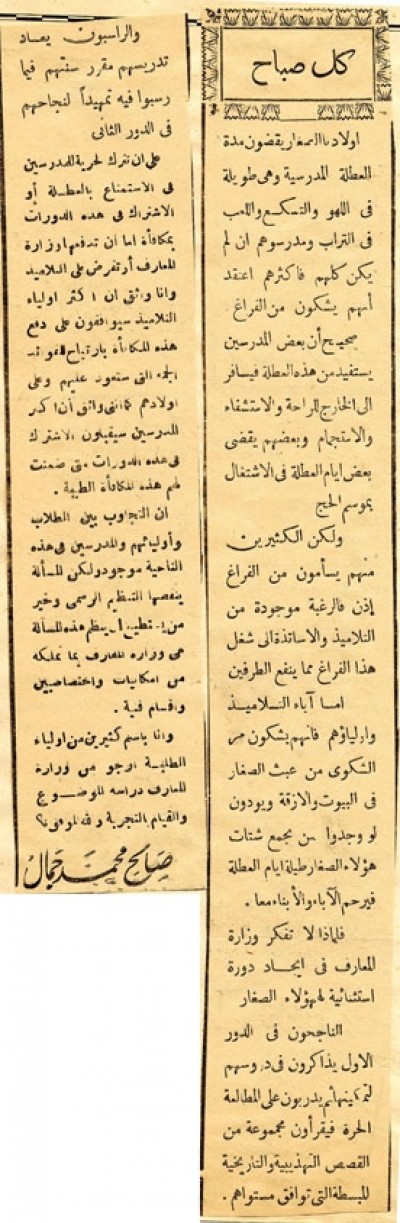 كل صباح
اولادنا الصغار يقضون مدة
العطلة المدرسية وهى طويلة
فى اللهو والتسكع واللعب
فى التراب ومدرسوهم ان لم
يكن كلهم فاكثرهم اعتقد
أنهم يشكون من الفراغ
صحيح أن بعض المدرسين
يستفيد من هذه العطلة فيسافر
الى الخارج للراحة والاستشفاء
والاستجمام وبعضهم يقضى
بعض ايام العطلة فى الاشتغال
بموسم الحج
ولكن الكثيرين
منهم يسأمون من الفراغ
إذن فالرغبة موجودة من
التلاميذ والاساتذة الى شغل
هذا الفراغ مما ينفع الطرفين
اما آباء التلاميذ
واولياؤهم فانهم يشكون مر
الشكوى من عبث الصغار
فى البيوت والازقة ويودون
لو وجدوا من يجمع شتات
هؤلاء الصغار طيلة ايام العطلة
فيرحم الآباء والأبناء معا .
فلماذا لا تفكر وزارة
المعارف فى ايجاد دورة
استثنائية لهؤلاء الصغار
الناجحون فى الدور
الاول يذاكرون فى دروسهم
لتمكينها ثم يدربون على المطالعة
الحرة فيقرأون مجموعة من
القصص التهذيبية والتاريخية
المبسطة التى توافق مستواهم .
والراسبون يعاد
تدريسهم مقرر سنتهم فيما
رسبوا فيه تمهيداً لنجاحهم
فى الدور الثانى
على ان نترك الحرية للمدرسين
فى الاستمتاع بالعطلة أو
الاشتراك فى هذه الدورات
بمكافأة اما ان تدفعها وزارة
المعارف أو تفرض على التلاميذ
وانا واثق ان اكثر اولياء
التلاميذ سيوافقون على دفع
هذه المكافأة بارتياح للفوائد
الجمة التى ستعود عليهم وعلى
اولادهم كما اننى واثق أن اكثر
المدرسين سيقبلون الاشتراك
فى هذه الدورات متى ضمنت
لهم هذه المكافأة الطيبة .
ان التجاوب بين الطلاب
وأوليائهم والمدرسين فى هذه
الناحية موجود ولكن المسألة
ينقصها التنظيم الرسمى وخير
من يستطيع ان ينظم هذه المسألة
هى وزارة المعارف بما تملكه
من امكانيات واختصاصيين
واقسام فنية .
وانا باسم كثيرين من اولياء
الطلبة ارجو من وزارة
المعارف دراسة الموضوع
والقيام بالتجربة والله الموفق؟
صالح محمد جمال